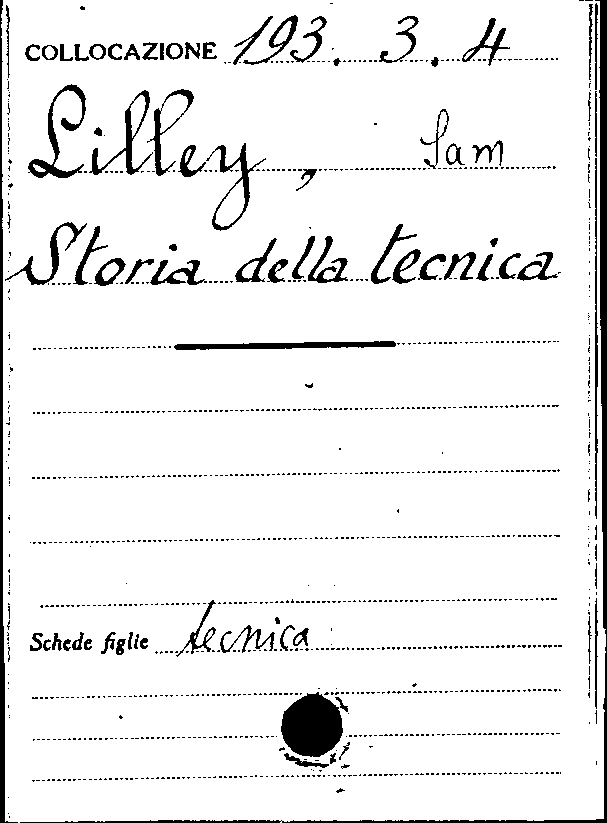 COLLOCAZIONE 193. 3. 4
Lilley, Sam
Storia della tecnica
Schede figlie tecnica